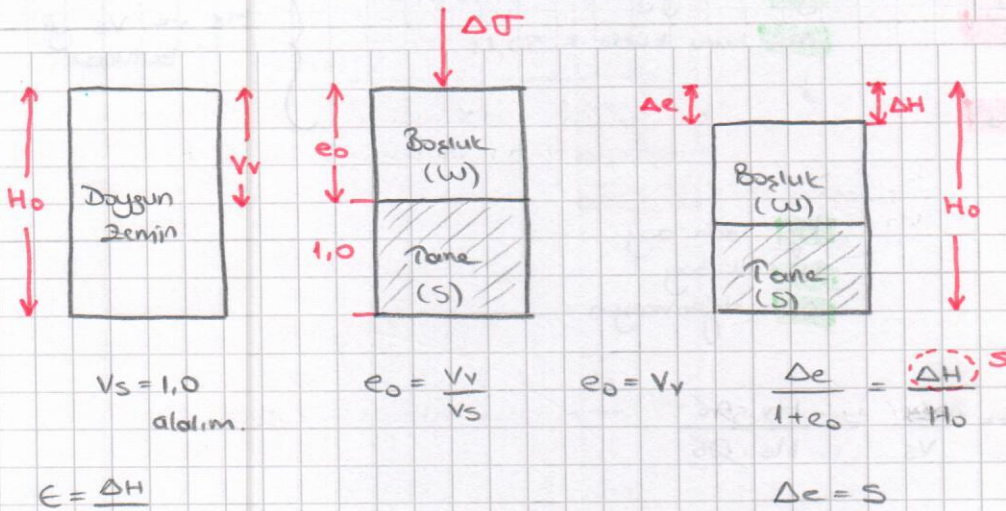 Δσ
H₀
Doygun
zemin
Vv
e₀
1,0
Boşluk
(W)
Tane
(S)
Δe
ΔH
Boşluk
(W)
Tane
(S)
H₀
Vs = 1,0
alalım.
e₀ = Vv / Vs
e₀ = Vv
Δe / 1+e₀ = ΔH / H₀
S
ϵ = ΔH
Δe = S